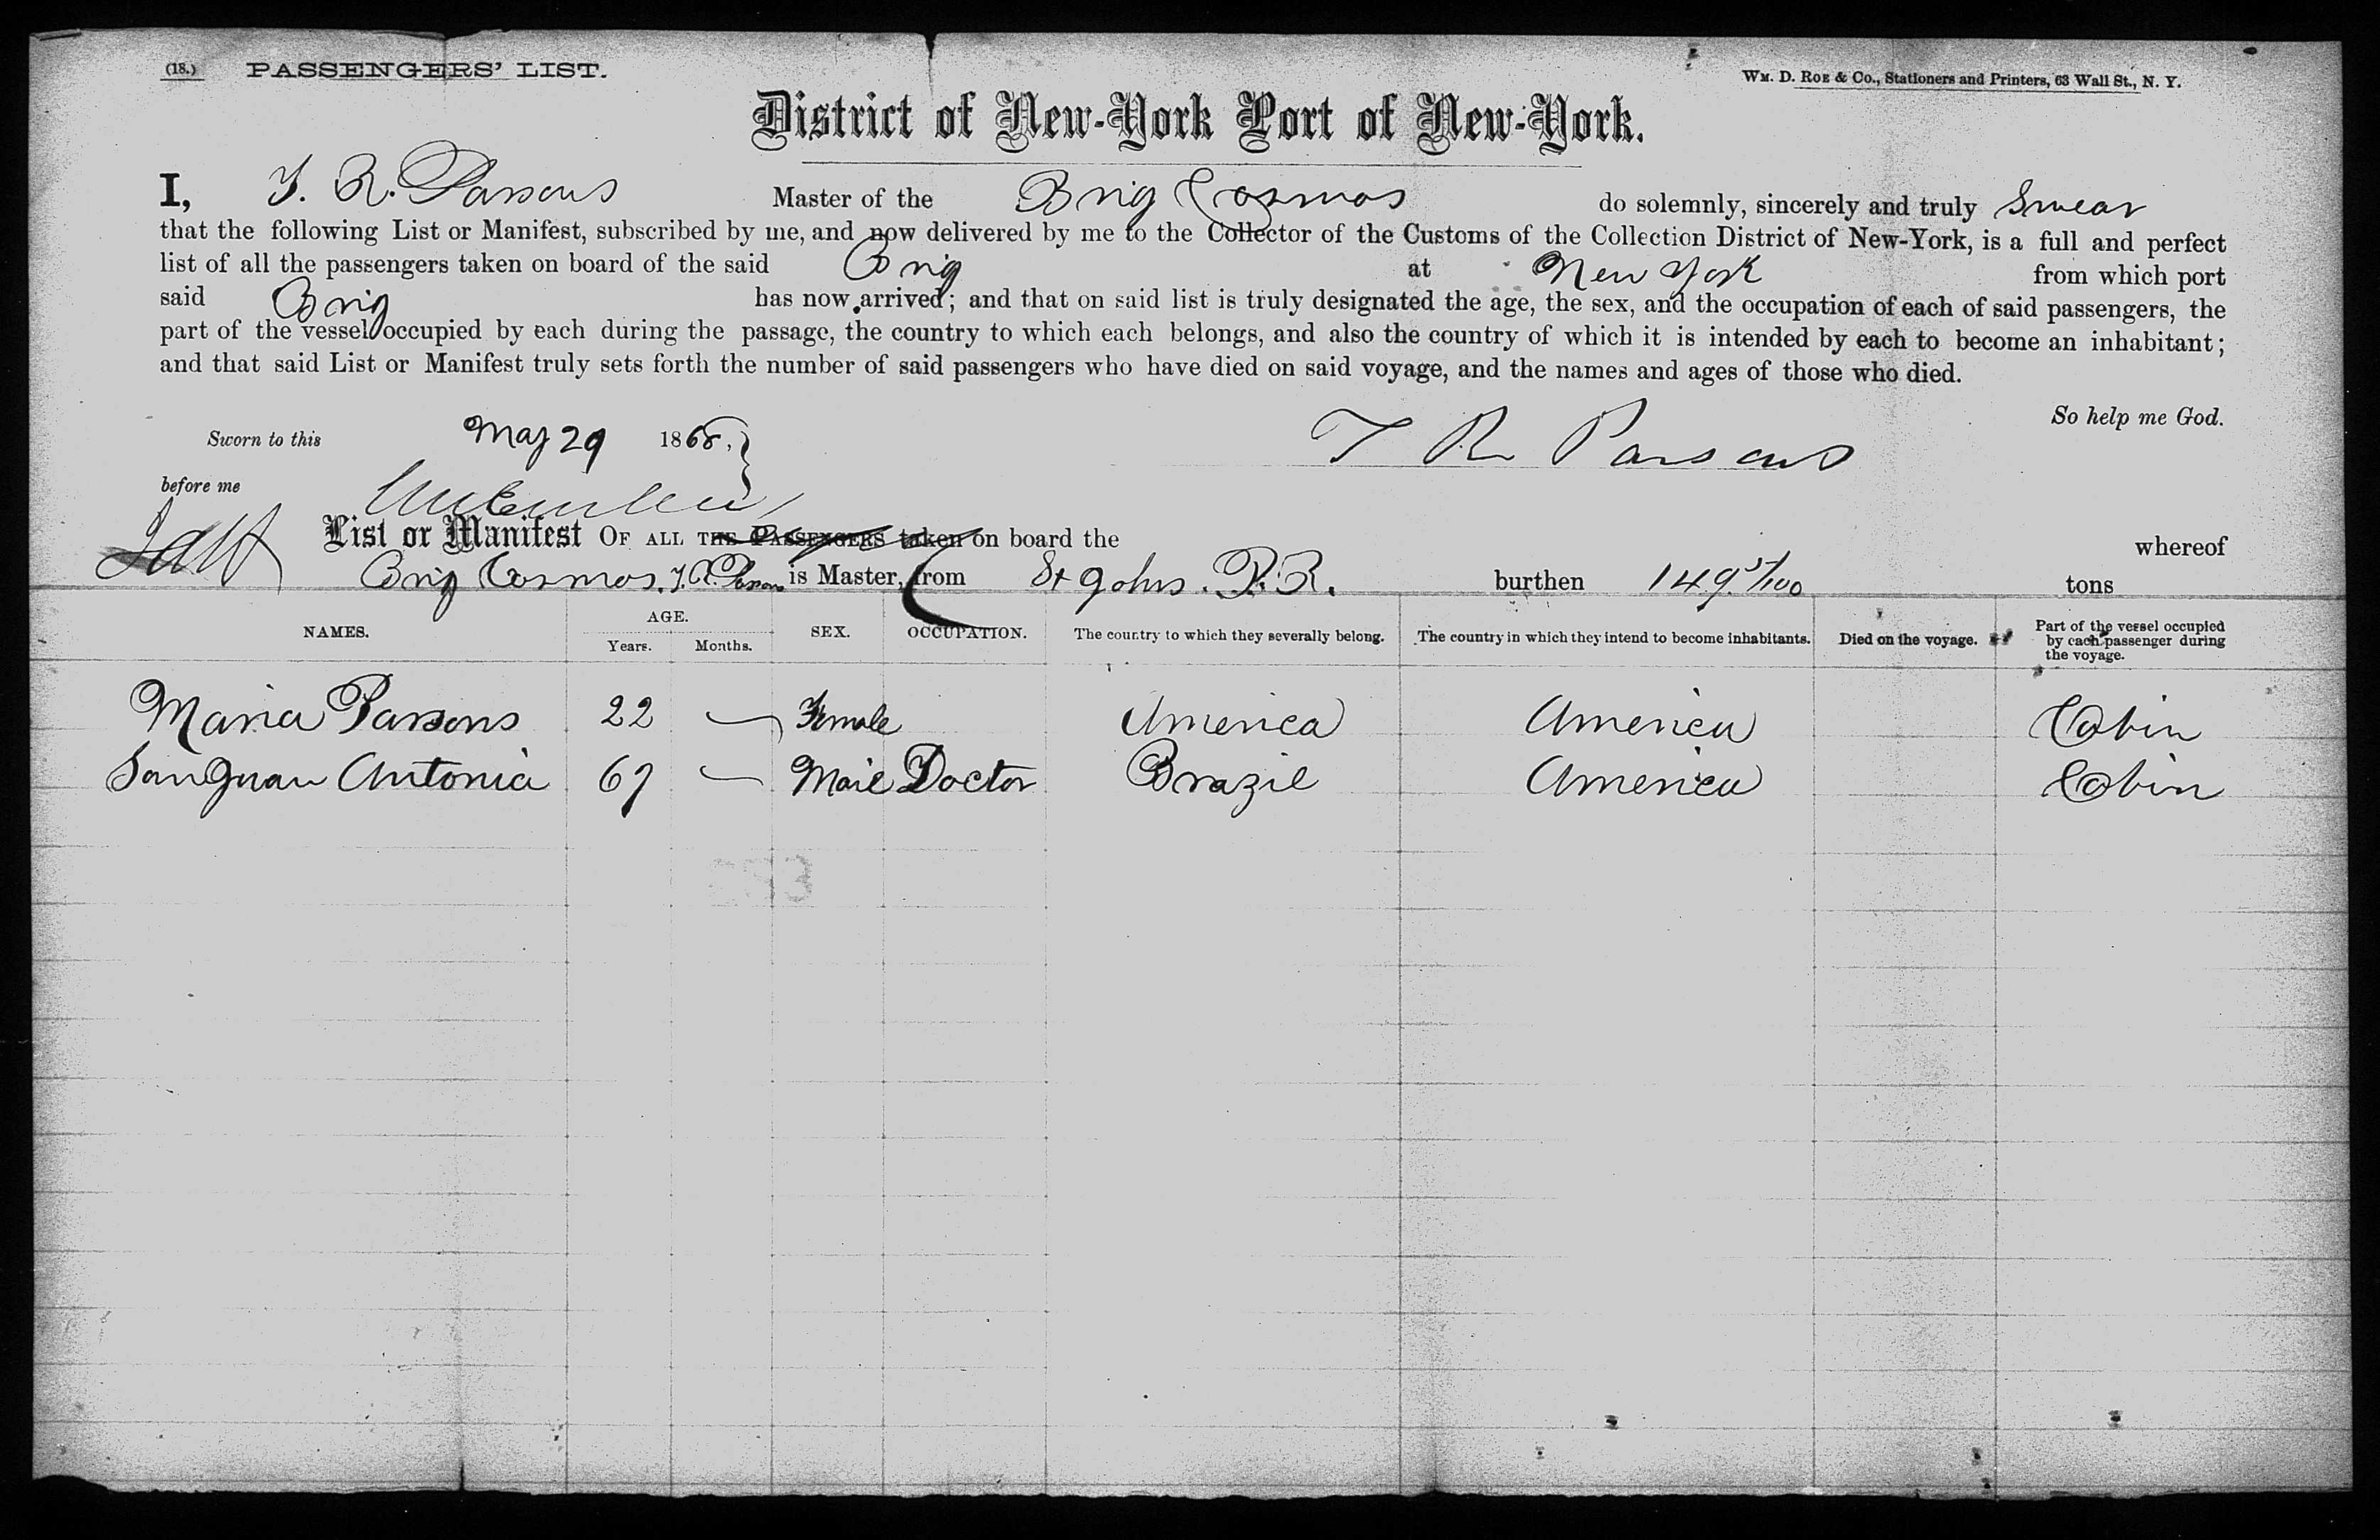 (18.) PASSENGERS' LIST.
WM. D. ROE & Co., Stationers and Printers, 63 Wall St., N. Y.
District of New-York Port of New-York.
I, T. R. Parsons Master of the Brig Cosmos do solemnly, sincerely and truly Swear
that the following List or Manifest, subscribed by me, and now delivered by me to the Collector of the Customs of the Collection District of New-York, is a full and perfect
list of all the passengers taken on board of the said Brig at New York from which port
said Brig has now arrived; and that on said list is truly designated the age, the sex, and the occupation of each of said passengers, the
part of the vessel occupied by each during the passage, the country to which each belongs, and also the country of which it is intended by each to become an inhabitant;
and that said List or Manifest truly sets forth the number of said passengers who have died on said voyage, and the names and ages of those who died.
So help me God.
Sworn to this May 29 1868, T R Parsons
before me
List or Manifest OF ALL THE PASSENGERS taken on board the whereof
Brig Cosmos. T. R. Parsons is Master, from St Johns. P. R. burthen 149 5/100 tons
NAMES. AGE. Years. Months. SEX. OCCUPATION. The country to which they severally belong. The country in which they intend to become inhabitants. Died on the voyage. Part of the vessel occupied by each passenger during the voyage.
Maria Parsons 22 — Female America America Cabin
San Juan Antonia 67 — Male Doctor Brazil America Cabin